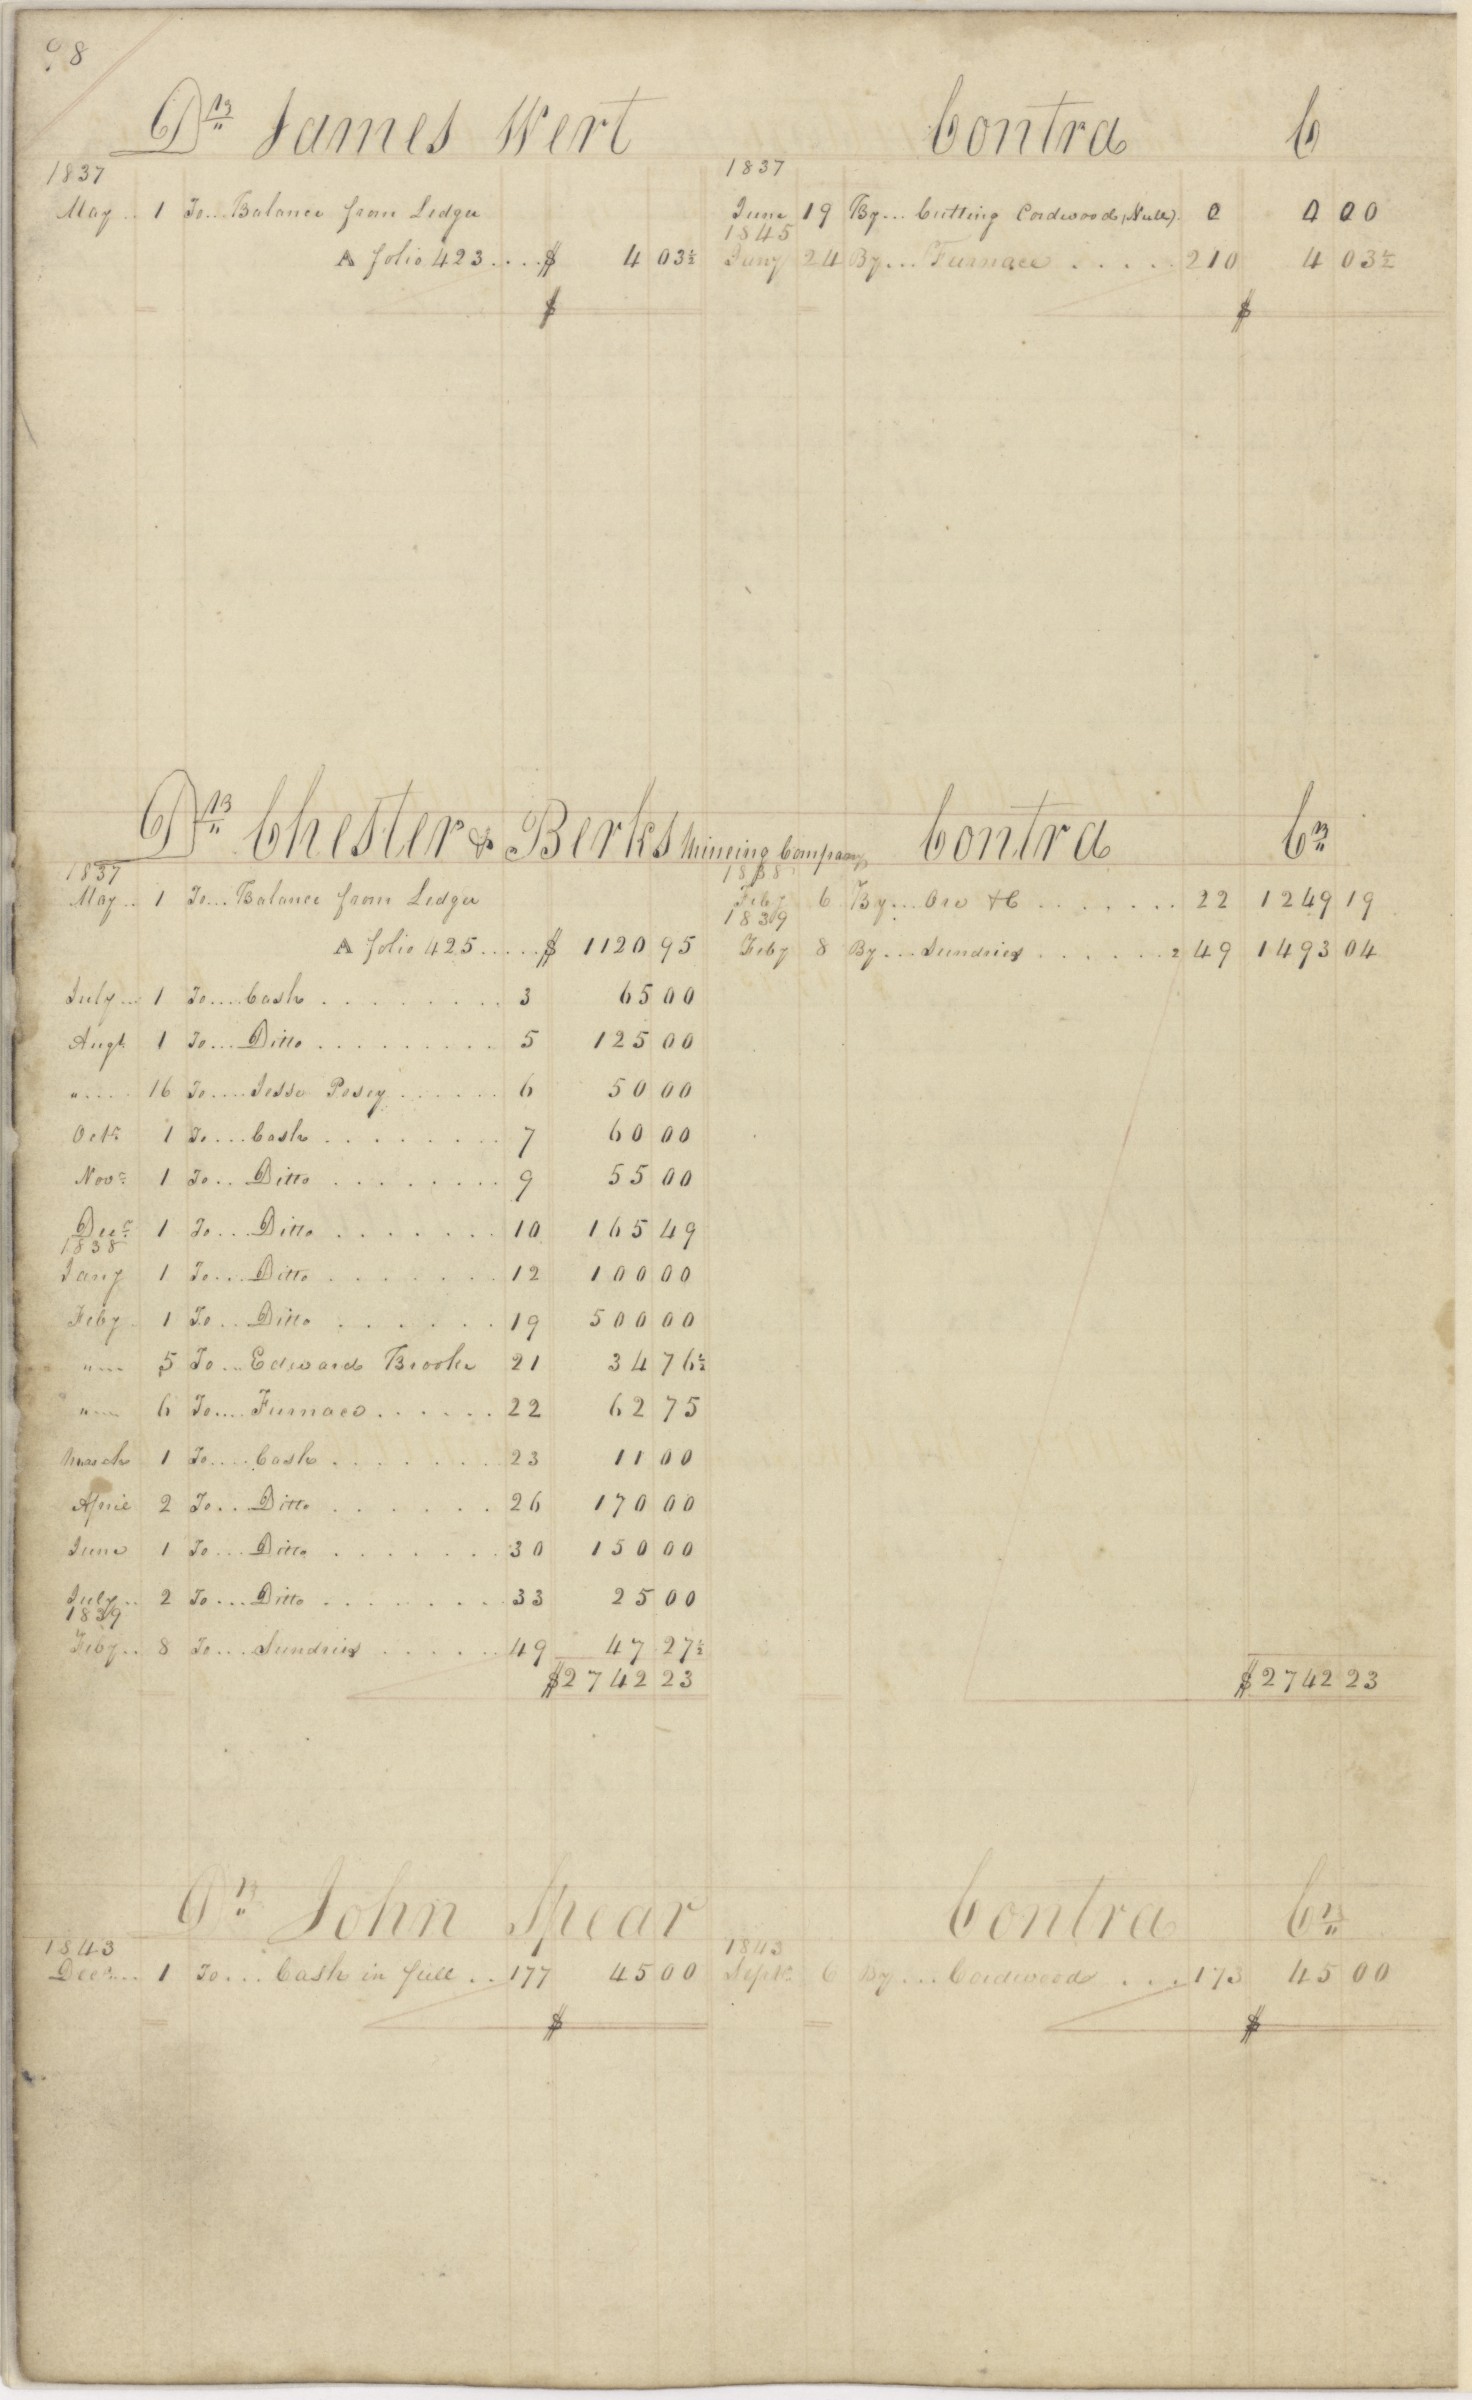 98
Dr. James Wert Contra C
1837 1837
May .. 1 To... Balance from Ledger June 19 By... Cutting Cordwood, (Null). 0 0 00
1845
A folio 423 .... $ 4 03½ Jany 24 By... Furnace ..... 210 4 03½
$ $
Dr. Chester & Berks Mineing Company Contra Cr.
1837 1838
May .. 1 To... Balance from Ledger Feby 6 By... Ore &C ....... 22 1249 19
1839
A folio 425 ..... $ 1120 95 Feby 8 By... Sundries ...... 249 1493 04
July .. 1 To.... Cash ........ 3 65 00
Augt. 1 To... Ditto ......... 5 125 00
" .... 16 To.... Jesse Posey ...... 6 50 00
Octr. 1 To.... Cash ........ 7 60 00
Novr. 1 To.. Ditto ........ 9 55 00
Decr. 1 To... Ditto ....... 10 165 49
1838
Jany 1 To... Ditto ....... 12 100 00
Feby 1 To.. Ditto ...... 19 500 00
" .... 5 To... Edward Brooke 21 34 76½
" .... 6 To.... Furnace ...... 22 62 75
March 1 To.... Cash ....... 23 11 00
April 2 To.. Ditto ...... 26 170 00
June 1 To... Ditto ....... 30 150 00
July .. 2 To... Ditto ........ 33 25 00
1839
Feby .. 8 To... Sundries ..... 49 47 27½
$2742 23 $2742 23
Dr. John Spear Contra Cr.
1843 1843
Decr... 1 To... Cash in full .. 177 45 00 Septr. 6 By... Cordwood ... 173 45 00
$ $